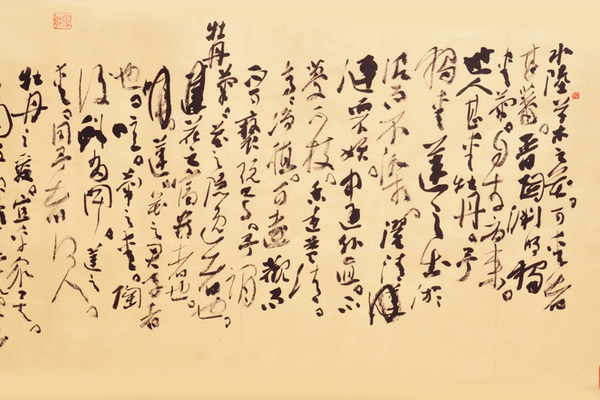 水陸草木之花。可愛者
甚蕃。晋陶渊明獨
愛菊。自李唐来。
世人甚愛牡丹。予
獨愛蓮之出於
淤泥而不染。濯清
漣而不妖。中通外直。不
蔓不枝。香遠益清。
亭亭净植。可遠觀而
不可褻玩焉。予謂
菊。花之隐逸者也。
牡丹
花之富貴者也。
蓮。花之君子者
也。噫。菊之愛。陶
後鮮有聞。蓮之
愛。同予者何人。
牡丹之愛。宜乎衆矣。